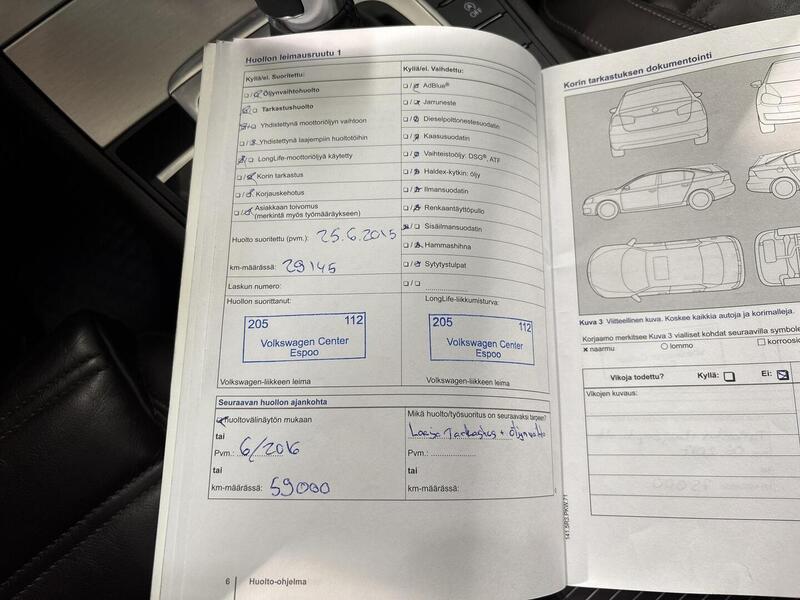 OFF
Huollon leimausruutu 1
Kyllä/ei. Suoritettu:
Öljynvaihtohuolto
Tarkastushuolto
Yhdistettynä moottoriöljyn vaihtoon
Yhdistettynä laajempiin huoltotöihin
LongLife-moottoriöljyä käytetty
Korin tarkastus
Korjauskehotus
Asiakkaan toivomus
(merkintä myös työmääräykseen)
Huolto suoritettu (pvm.): 25.6.2015
km-määrässä: 29145
Laskun numero:
Huollon suorittanut:
205 112
Volkswagen Center
Espoo
Volkswagen-liikkeen leima
Kyllä/ei. Vaihdettu:
AdBlue®
Jarruneste
Dieselpolttonestesuodatin
Kaasusuodatin
Vaihteistoöljy: DSG®, ATF
Haldex-kytkin: öljy
Ilmansuodatin
Renkaantäyttöpullo
Sisäilmansuodatin
Hammashihna
Sytytystulpat
LongLife-liikkumisturva:
205 112
Volkswagen Center
Espoo
Volkswagen-liikkeen leima
Seuraavan huollon ajankohta
huoltovälinäytön mukaan
tai
Pvm.: 6/2016
tai
km-määrässä: 59000
Mikä huolto/työsuoritus on seuraavaksi tarpeen?
Laaja Tarkastus + öljynvaihto
Pvm.:
tai
km-määrässä:
6 Huolto-ohjelma
Korin tarkastuksen dokumentointi
Kuva 3 Viitteellinen kuva. Koskee kaikkia autoja ja korimalleja.
Korjaamo merkitsee Kuva 3 vialliset kohdat seuraavilla symbole
naarmu lommo korroosio
Vikoja todettu? Kyllä: Ei:
Vikojen kuvaus:
141.5R3.PKW.71